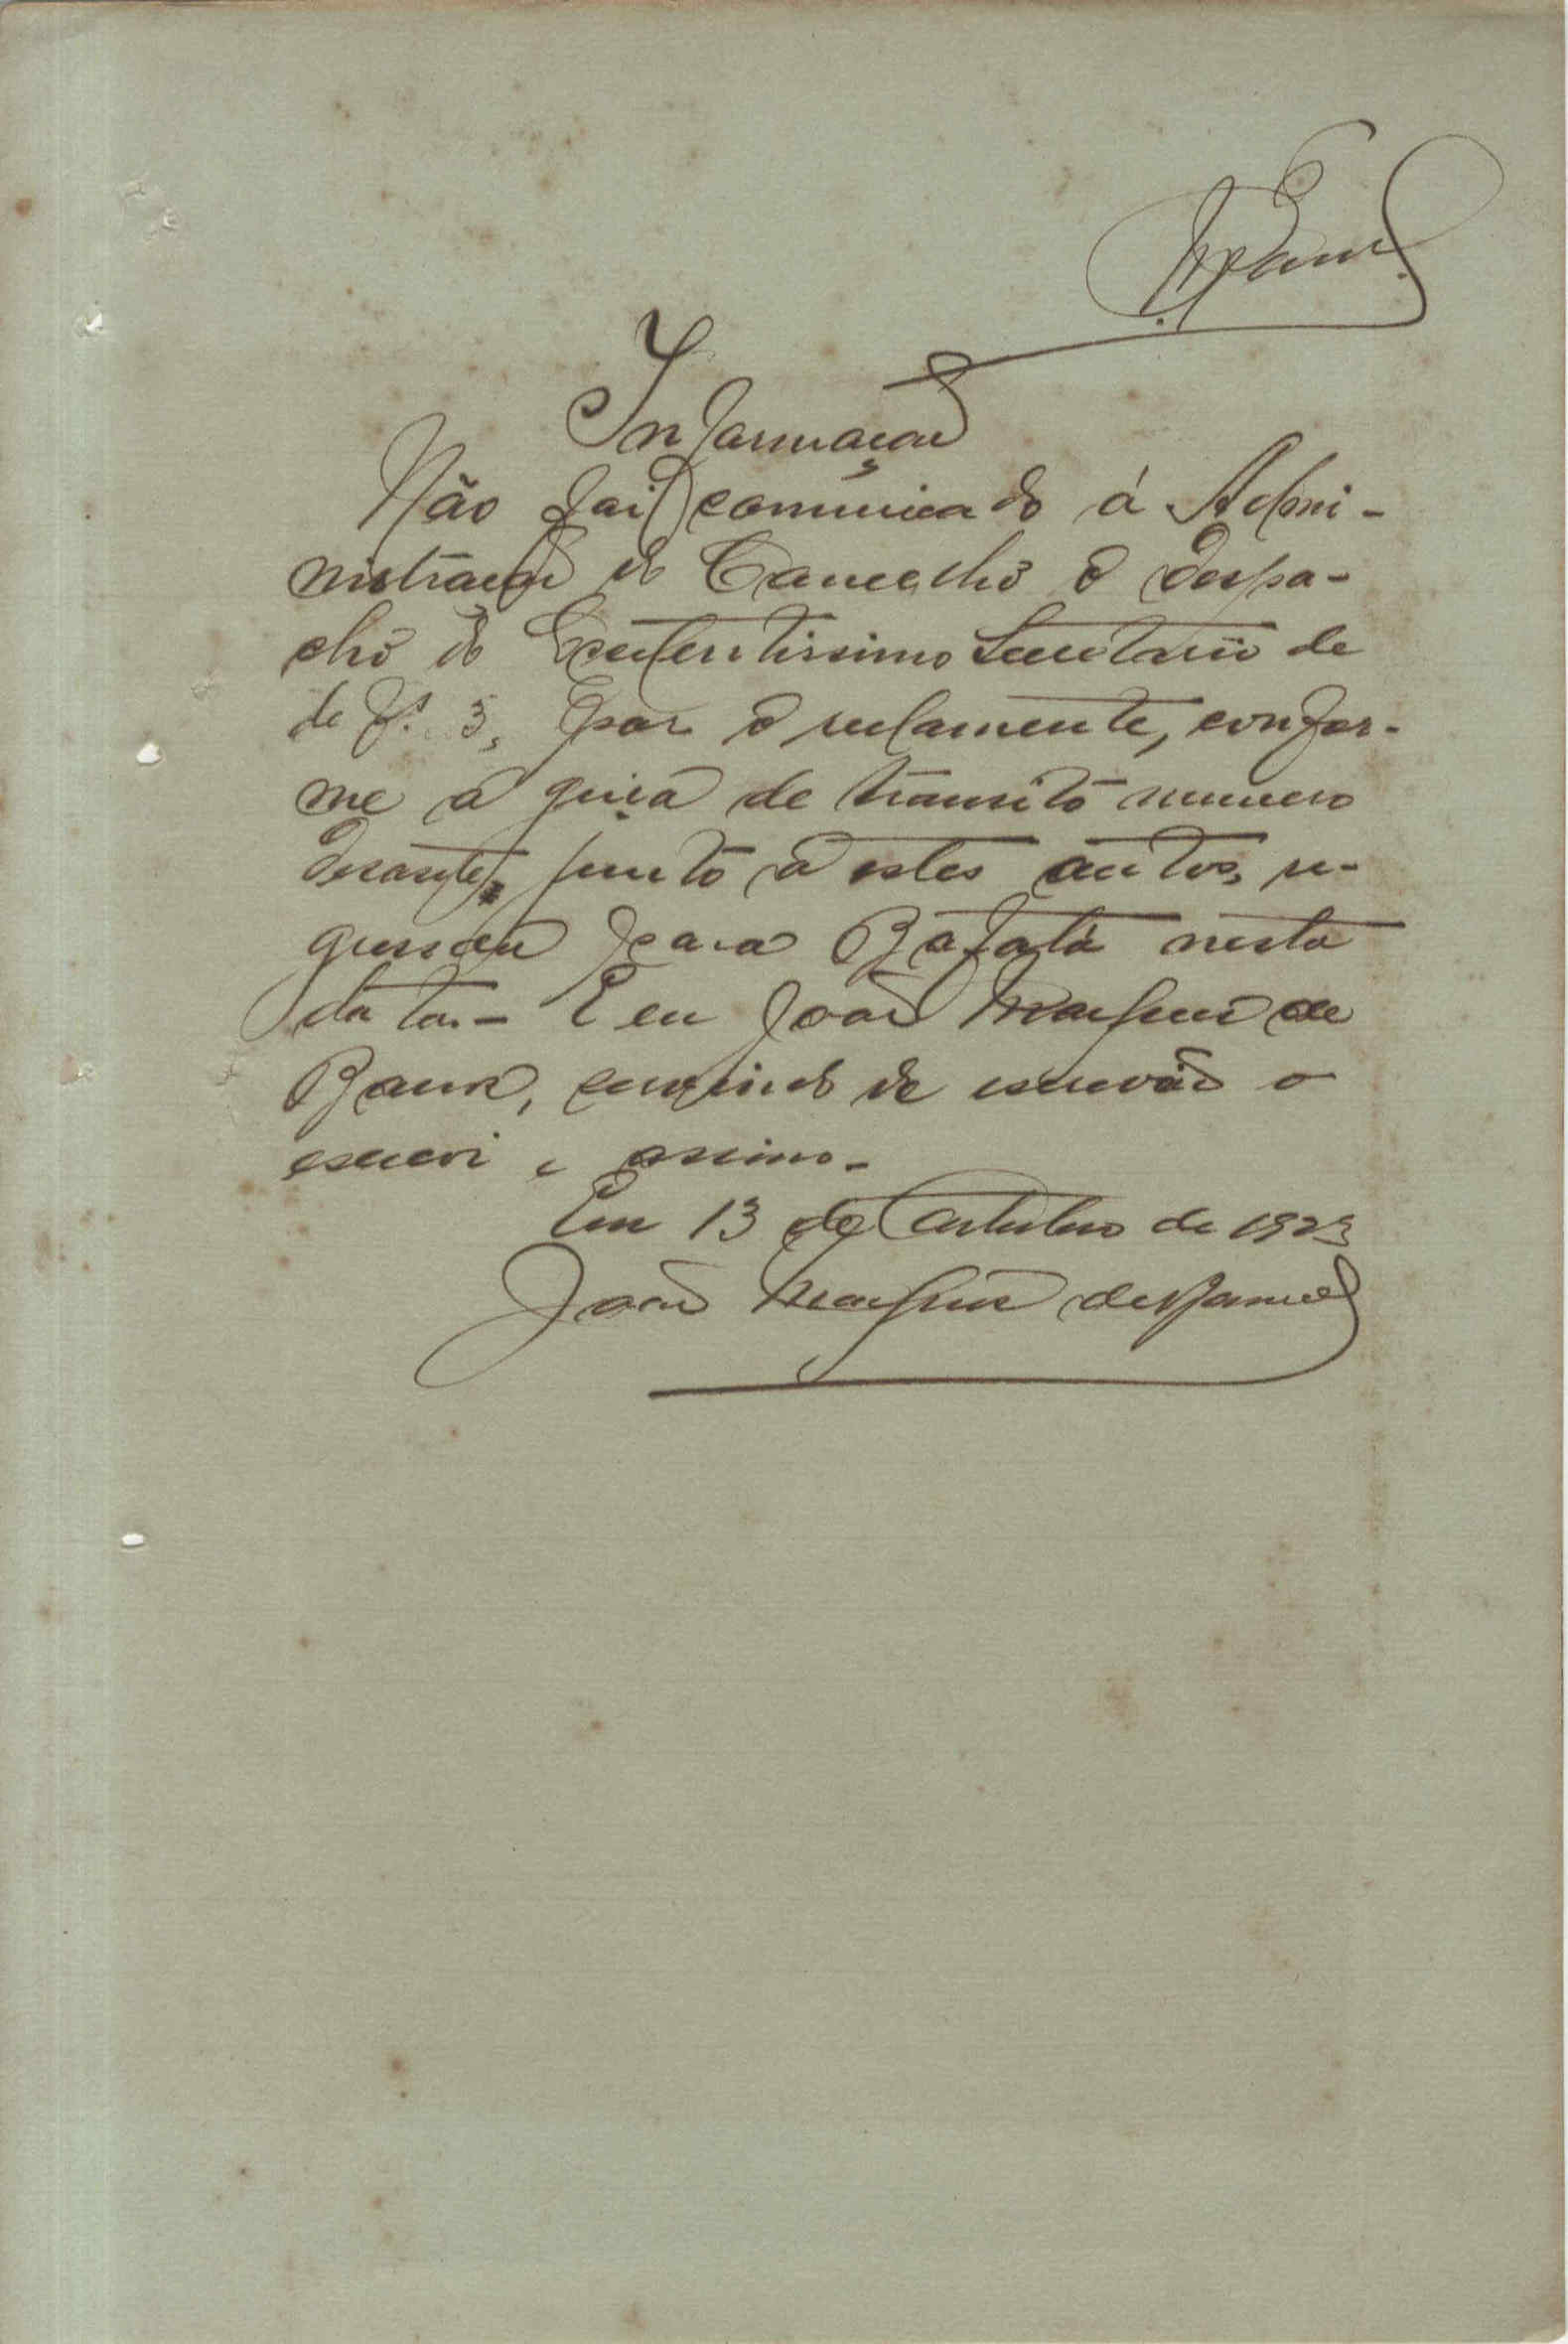 Informação
Não foi comunicado á Admi-
nistração do Concelho o despa-
cho do Excelentissimo Secretario de
de f. 3, por o reclamente, confor-
me a guia de transito numero
junto a estes autos, re-
gressou para Bafatá nesta
data.- E eu João Marques de
Barros, servindo de escrivão o
escrevi e assino.-
Em 13 de Outubro de 1923
João Marques de Barros